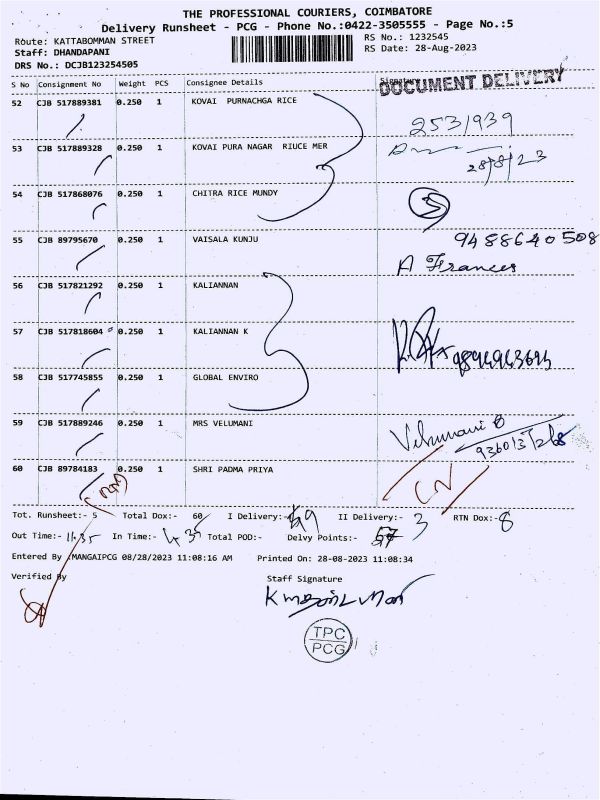 THE PROFESSIONAL COURIERS, COIMBATORE
Delivery Runsheet - PCG - Phone No.:0422-3505555 - Page No.:5
Route: KATTABOMMAN STREET
RS No.: 1232545
Staff: DHANDAPANI
RS Date: 28-Aug-2023
DRS No.: DCJB123254505
S No Consignment No Weight PCS Consignee Details Signature
DOCUMENT DELIVERY
52 CJB 517889381 0.250 1 KOVAI PURNACHGA RICE
2531939
53 CJB 517889328 0.250 1 KOVAI PURA NAGAR RIUCE MER
28/8/23
54 CJB 517868076 0.250 1 CHITRA RICE MUNDY
55 CJB 89795670 0.250 1 VAISALA KUNJU
9488640508
A Frances
56 CJB 517821292 0.250 1 KALIANNAN
57 CJB 517818604 0.250 1 KALIANNAN K
58 CJB 517745855 0.250 1 GLOBAL ENVIRO
59 CJB 517889246 0.250 1 MRS VELUMANI
Velumani
60 CJB 89784183 0.250 1 SHRI PADMA PRIYA
Tot. Runsheet:- 5 Total Dox:- 60 I Delivery:- II Delivery:- 3 RTN Dox:- 8
Out Time:- 11.35 In Time:- 4.35 Total POD:- Delvy Points:- 57
Entered By :MANGAIPCG 08/28/2023 11:08:16 AM Printed On: 28-08-2023 11:08:34
Verified By
Staff Signature
TPC
PCG